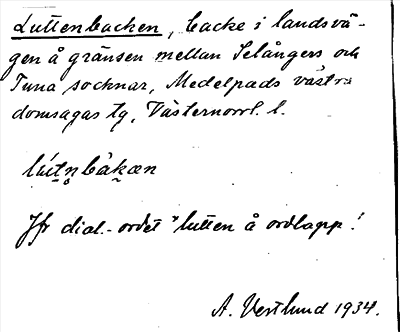 Luttenbacken, backe i landsvä-
gen å gränsen mellan Selångers och
Tuna socknar, Medelpads västra
domsagas tg, Västernorrl. l.
lút̠n̥bàkæn
Jfr dial.-ordet "lutten å ordlapp!
A. Vestlund 1934.